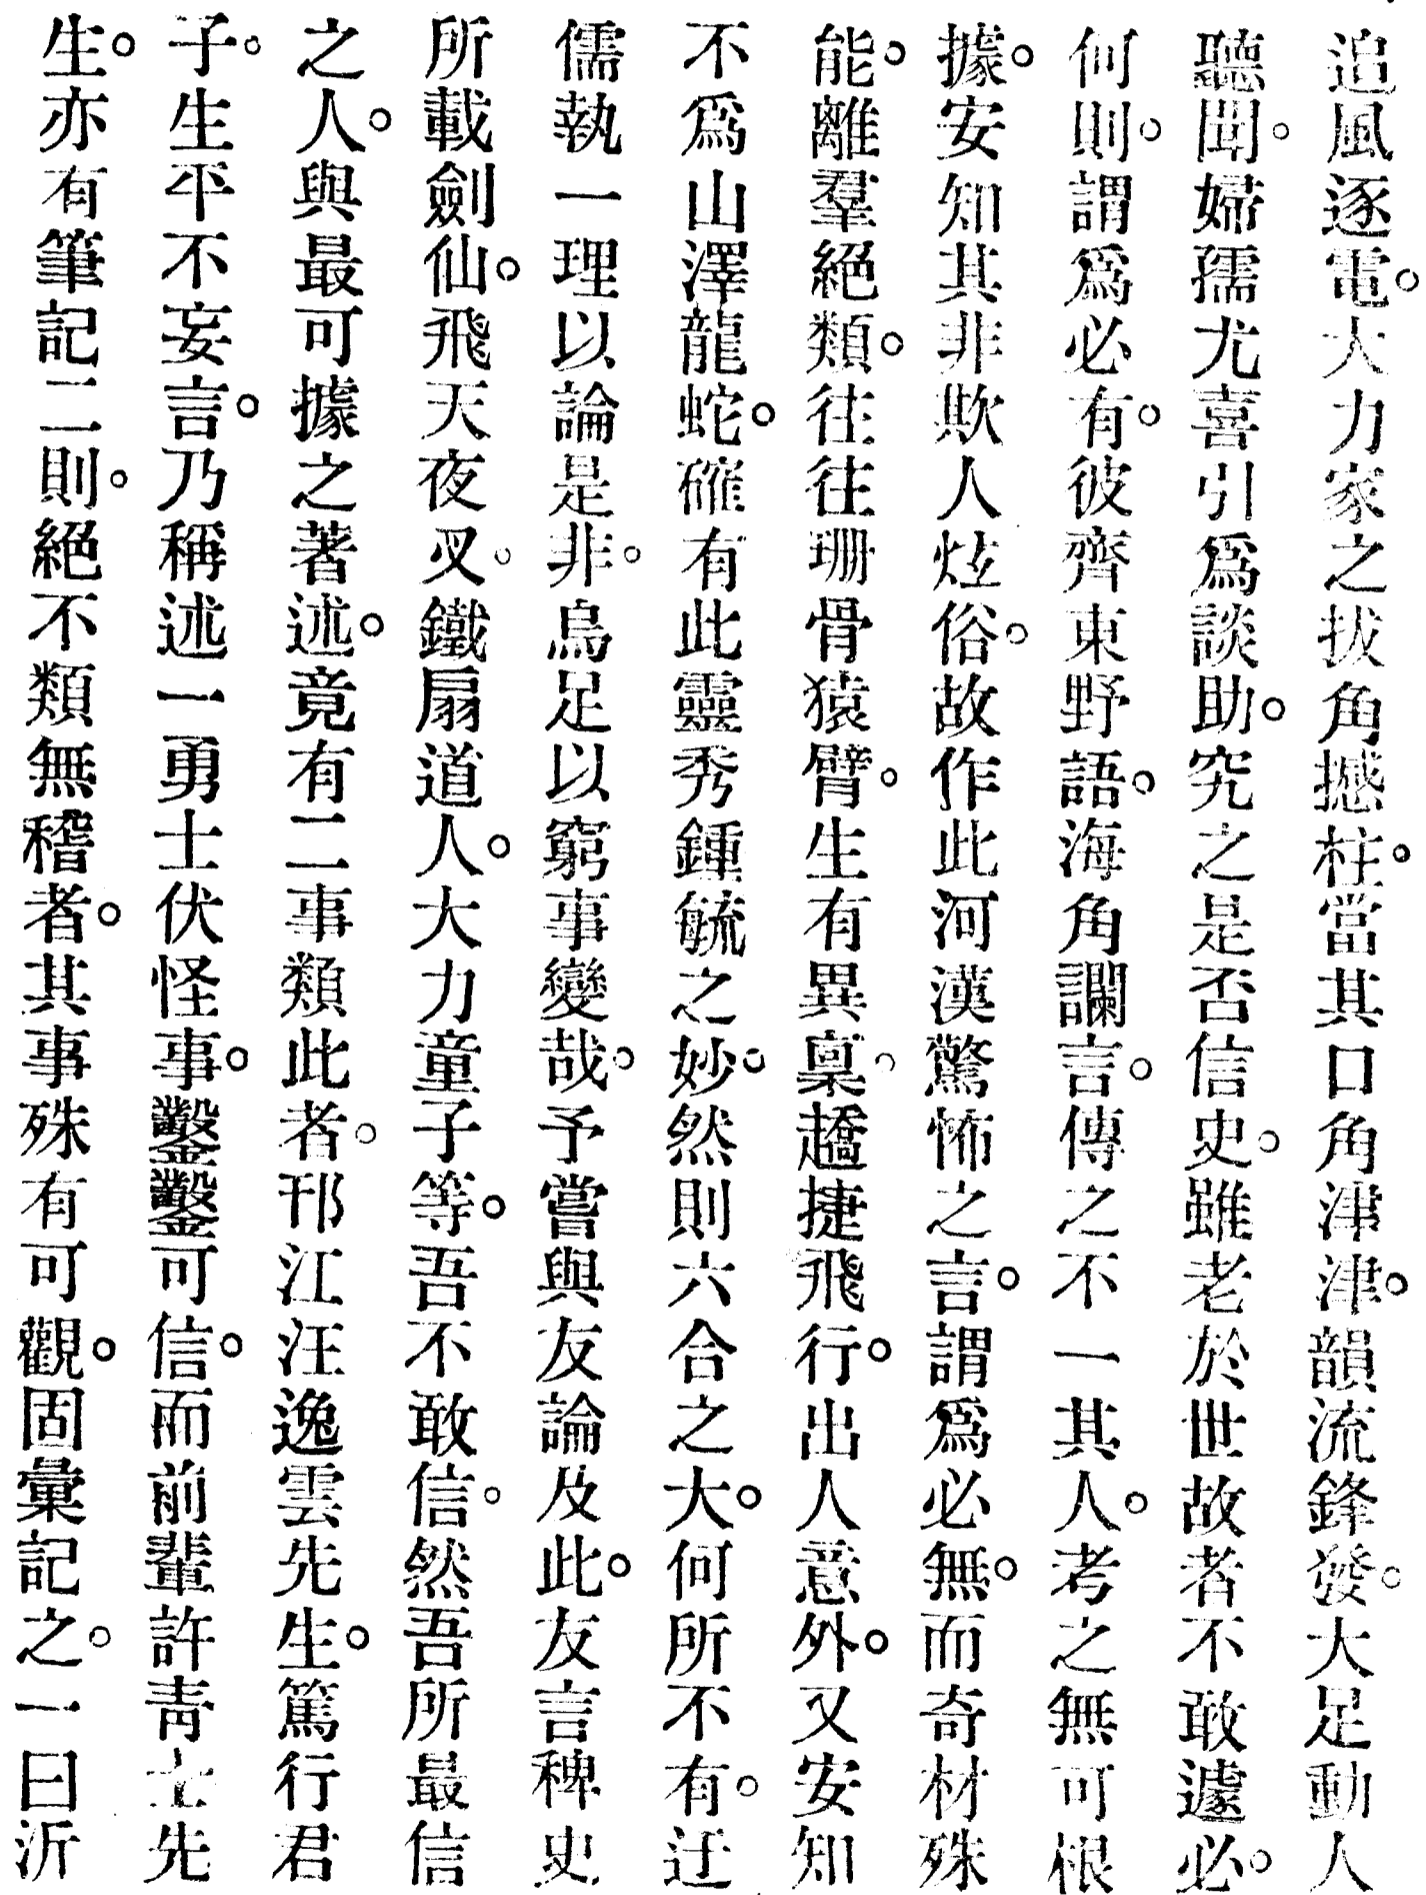 追風逐電。大力家之拔角撼柱。當其口角津津。韻流鋒發。大足動人
聽聞。婦孺尤喜引爲談助。究之是否信史。雖老於世故者不敢遽必。
何則。謂爲必有。彼齊東野語。海角讕言。傳之不一其人。考之無可根
據。安知其非欺人炫俗。故作此河漢驚怖之言。謂爲必無。而奇材殊
能。離羣絕類。往往珊骨猿臂。生有異稟。趫捷飛行。出人意外。又安知
不爲山澤龍蛇。確有此靈秀鍾毓之妙。然則六合之大。何所不有。迂
儒執一理以論是非。烏足以窮事變哉。予嘗與友論及此。友言稗史
所載劍仙。飛天夜叉。鐵扇道人。大力童子等。吾不敢信。然吾所最信
之人。與最可據之著述。竟有二事類此者。邗江汪逸雲先生。篤行君
子。生平不妄言。乃稱述一勇士伏怪事。鑿鑿可信。而前輩許靑士先
生。亦有筆記二則。絕不類無稽者。其事殊有可觀。固彙記之。一曰沂